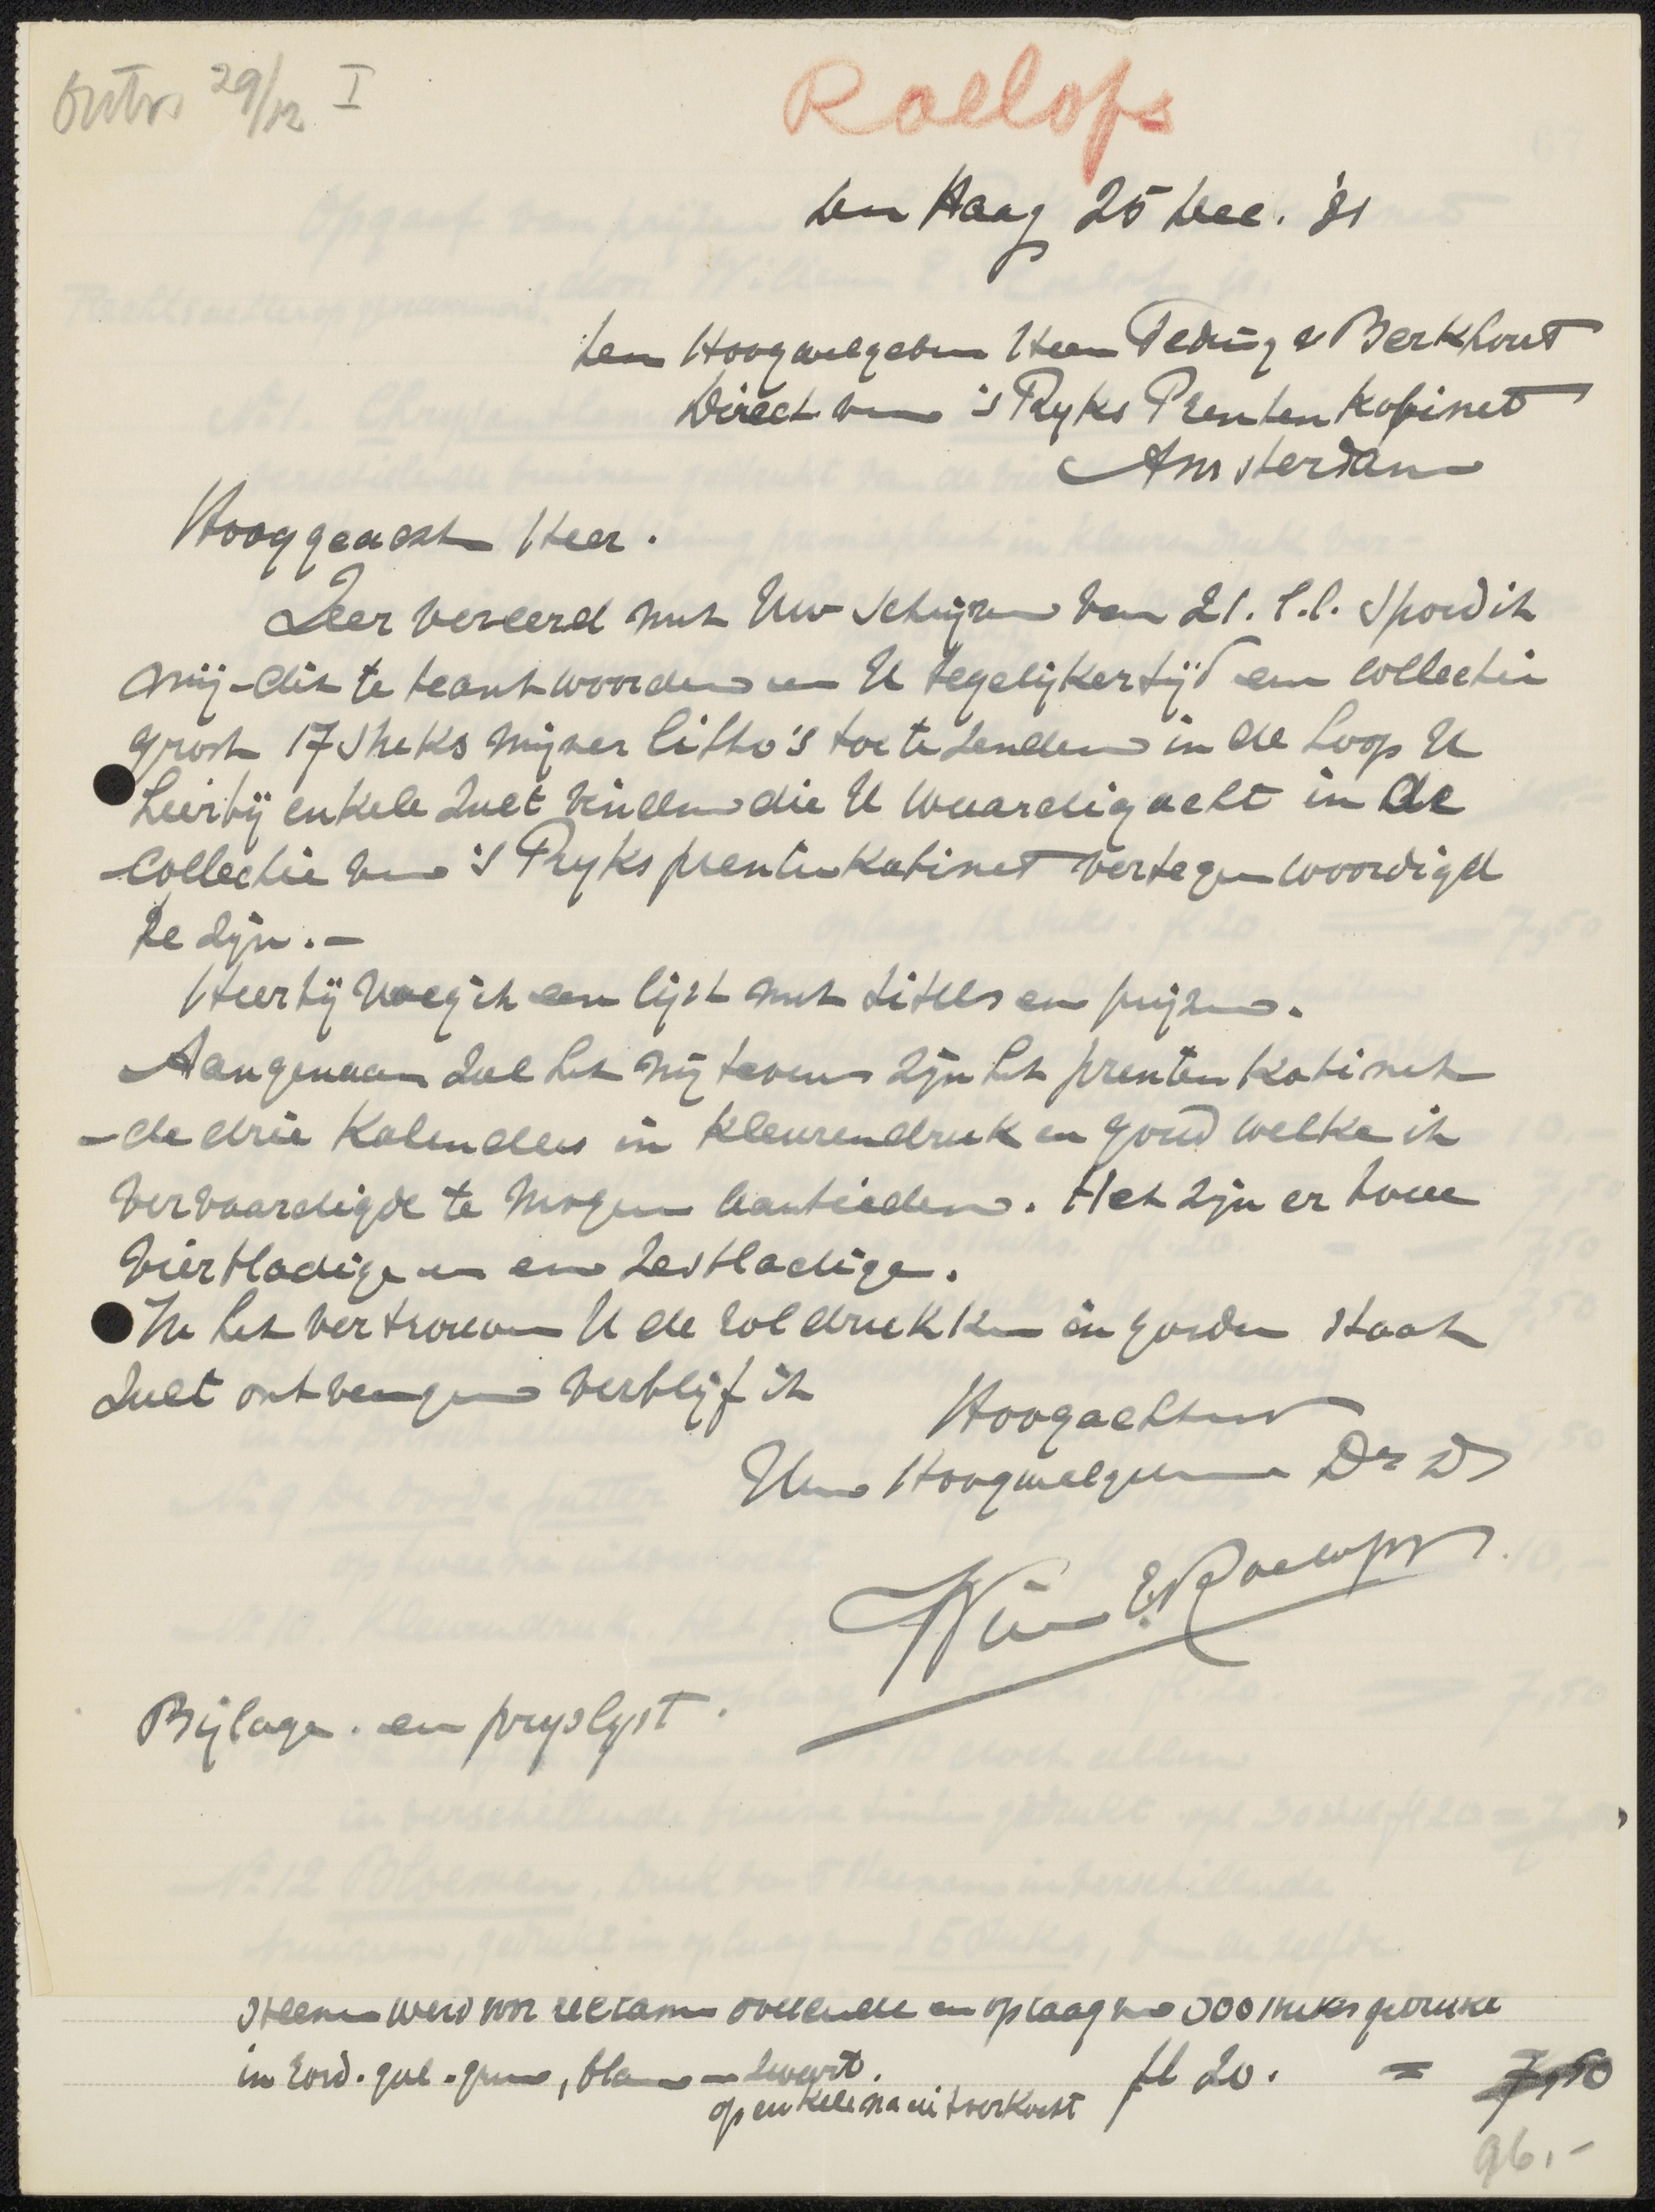 Antw. 29/12 I
Roelofs
den Haag 25 Dec. '31
den Hoogwelgeboren Heer Teding v Berkhout
Direct van 's Ryks Prentenkabinet
Amsterdam
Hooggeacht Heer.
Zeer vereerd met Uw schrijven van 21. l.l. spoed ik
mij dit te beantwoorden en U tegelijkertijd een collectie
groot 17 stuks mijner litho's toe te zenden in de hoop U
hierbij enkele zult vinden die U waardig acht in de
Collectie van 's Ryksprentenkabinet vertegenwoordigd
te zijn.-
Hierbij voeg ik een lijst met titels en prijzen.
Aangenaam zal het mij tevens zijn het prentenkabinet
de drie Kalenders in kleurendruk en goud welke ik
vervaardigde te mogen aanbieden. Het zijn er twee
vierbladige en een zesbladige.
In het vertrouwen U de rol drukken in goeden staat
zult ontvangen verblijf ik
Hoogachtend
Uw Hoogwelgeboren Dr D
Willem E. Roelofs Jr
Bijlage. een pryslyst.
Steenen werd voor reclame doeleinde en oplaag van 500 stuks gedrukt
in rood. geel. groen, blauw en zwart.
op enkele na uitverkocht fl 20. = 7,50
96.-